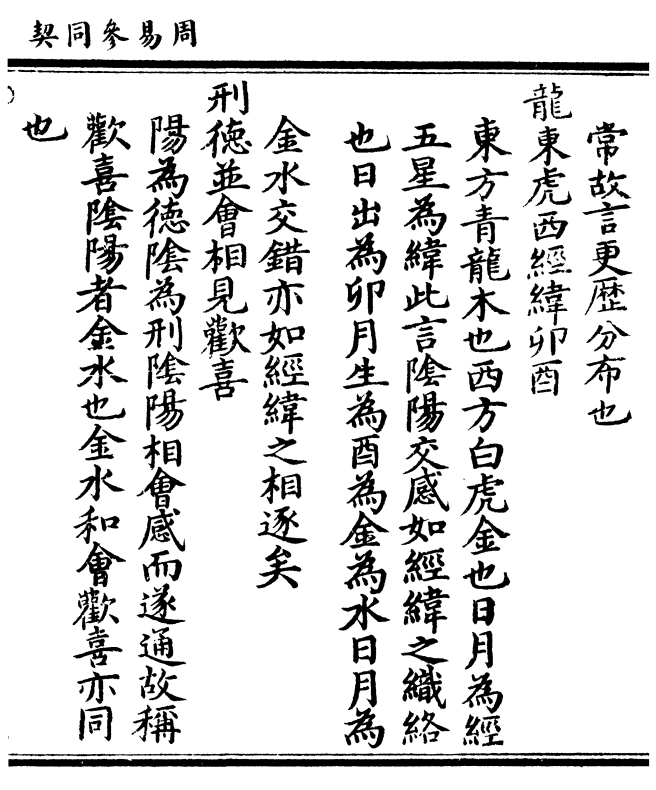 周易參同契
常故言更歷分布也
龍東虎西經緯卯酉
東方青龍木也西方白虎金也日月為經
五星為緯此言陰陽交感如經緯之織絡
也日出為卯月生為酉為金為水日月為
金水交錯亦如經緯之相逐矣
刑德並會相見歡喜
陽為德陰為刑陰陽相會感而遂通故稱
歡喜陰陽者金水也金水和會歡喜亦同
也